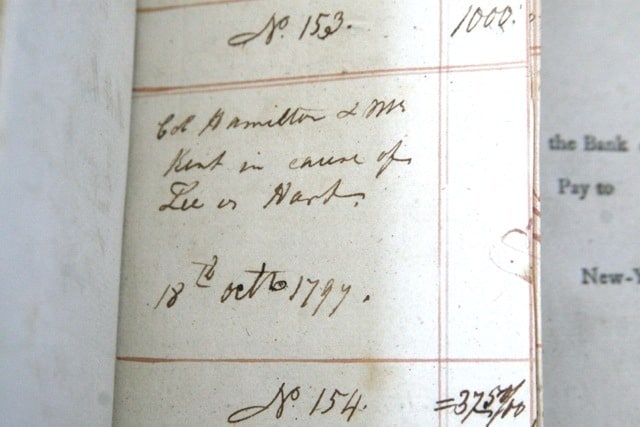 No. 153. 1000.
Col Hamilton & Mr
Kent in cause of
Lee vs Hart.
18th octbr 1797.
No. 154. =37 50/100
the Bank
Pay to
New-Y